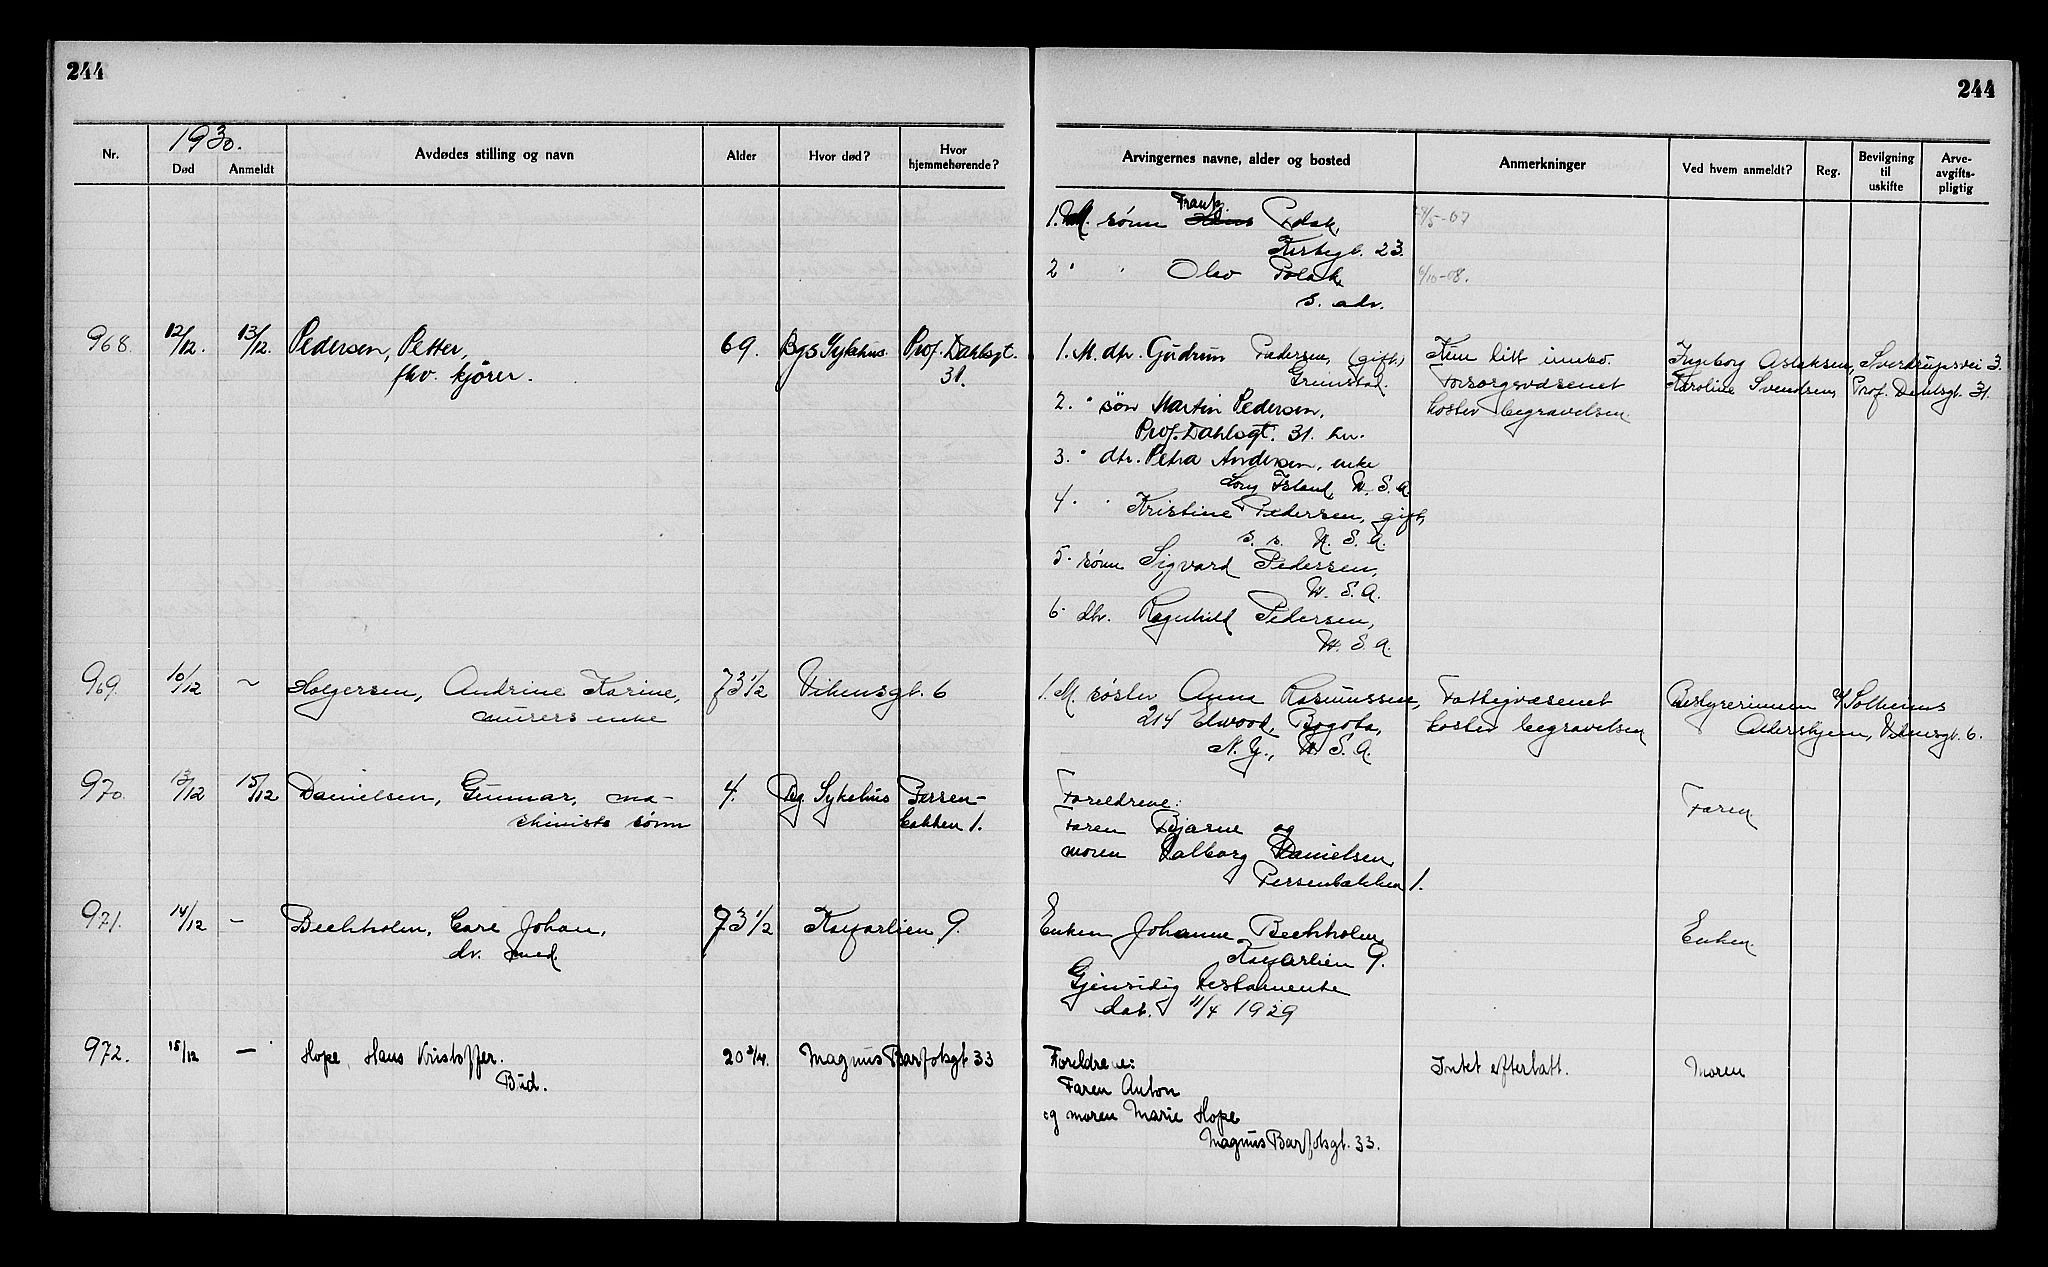 244
244
1930.
Nr.
Død
Anmeldt
Avdødes stilling og navn
Alder
Hvor død?
Hvor
hjemmehørende?
Arvingernes navne, alder og bosted
Anmerkninger
Ved hvem anmeldt?
Reg.
Bevilgning
til
uskifte
Arve-
avgifts-
pligtig
1. M. sønn Frank Polak,
23.
2 " " Olav Polak
s. adr.
/5-07
6/10-08.
968. 12/12. 13/12. Pedersen, Petter, 69. Bgs Sykehus. Prof. Dahlsgt.
fhv. kjører. 31.
1. M. dtr. Gudrun Pedersen, (gift)
Grimstad.
2. " søn Martin Pedersen,
Prof. Dahlsgt. 31. hr.
3. " dtr. Petra Andersen, enke
Long Island, U. S. A.
4. " Kristine Pedersen, gift,
s. s. U. S. A.
5. sønn Sigvard Pedersen,
U. S. A.
6. dtr. Ragnhild Pedersen,
U. S. A.
Kun litt innbo.
Forsorgsvæsenet
koster begravelsen.
Ingeborg Aslaksen, Sverdrupsvei 3.
Karoline Svendsen, Prof. Dahlsgt. 31.
969. 10/12 ~ Holgersen, Andrine Karine, 73 1/2 Vikensgt. 6
murers enke
1. M. søster Anna Rasmussen,
214 Elwood, Bogota,
N. Y., U. S. A.
Fattigvæsenet
koster begravelsen
Bestyrerinnen af Solheims
Aldershjem, Vikensgt. 6.
970. 13/12 15/12 Danielsen, Gunnar, ma- 4. Bg. Sykehus Persen-
skinists sønn bakken 1.
Foreldrene:
Faren Bjarne og
moren Valborg Danielsen
Persenbakken 1.
Faren.
971. 14/12 - Bechholm, Carl Johan, 73 1/2 Kalfarlien 9.
dr. med.
Enken Johanne Bechholm,
Kalfarlien 9.
Gjensidig testamente
dat. 11/4 1929
Enken.
972. 15/12 - Hope, Hans Kristoffer. 20 3/4. Magnus Barfotsgt 33
Bud.
Foreldrene:
Faren Anton
og moren Marie Hope
Magnus Barfotsgt. 33.
Intet efterlatt.
Moren